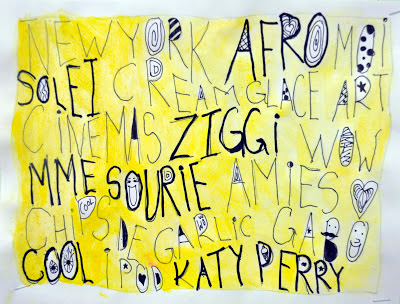 NEW YORK AFRO MOI
SOLEI CREAM GLACE ART
CiNEMAS ZIGGi WOW
MME SOURIE AMIES
COOL
CHiPS DE GARLIC GABO
COOL iPOD KATY PERRY